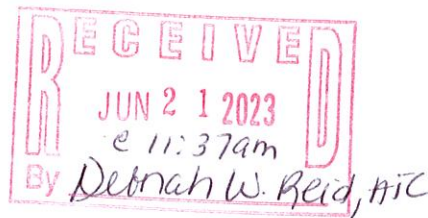 RECEIVED
JUN 21 2023
@ 11:37am
By Debnah W. Reid, AIC